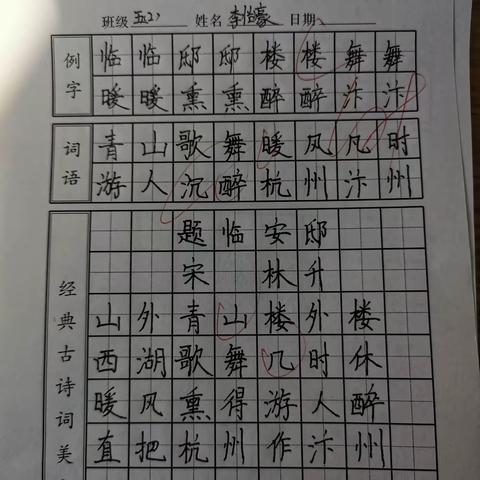 班级 五(2) 姓名 李怡豪 日期
例字
临临邸邸楼楼舞舞
暖暖熏熏醉醉汴汴
词语
青山歌舞暖风凡时
游人沉醉杭州汴州
经典古诗词美
题临安邸
宋 林升
山外青山楼外楼
西湖歌舞几时休
暖风熏得游人醉
直把杭州作汴州